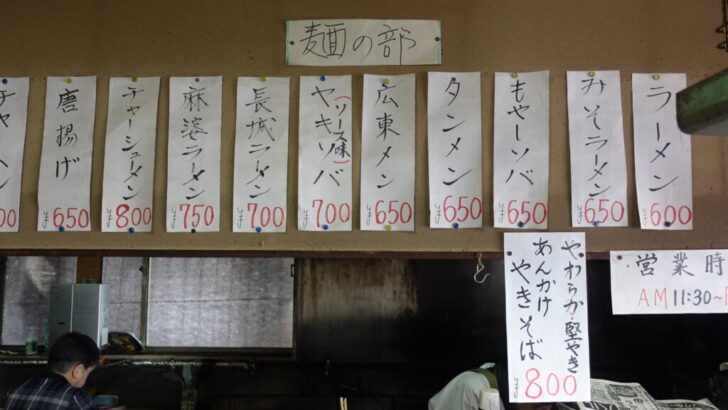 麺の部
ラーメン
600
みそラーメン
650
もやしソバ
650
タンメン
650
広東メン
650
ヤキソバ
(ソース味)
700
長城ラーメン
700
麻婆ラーメン
750
チャーシューメン
800
唐揚げ
650
やわらか・堅やき
あんかけ
やきそば
800
営業時
AM 11:30~